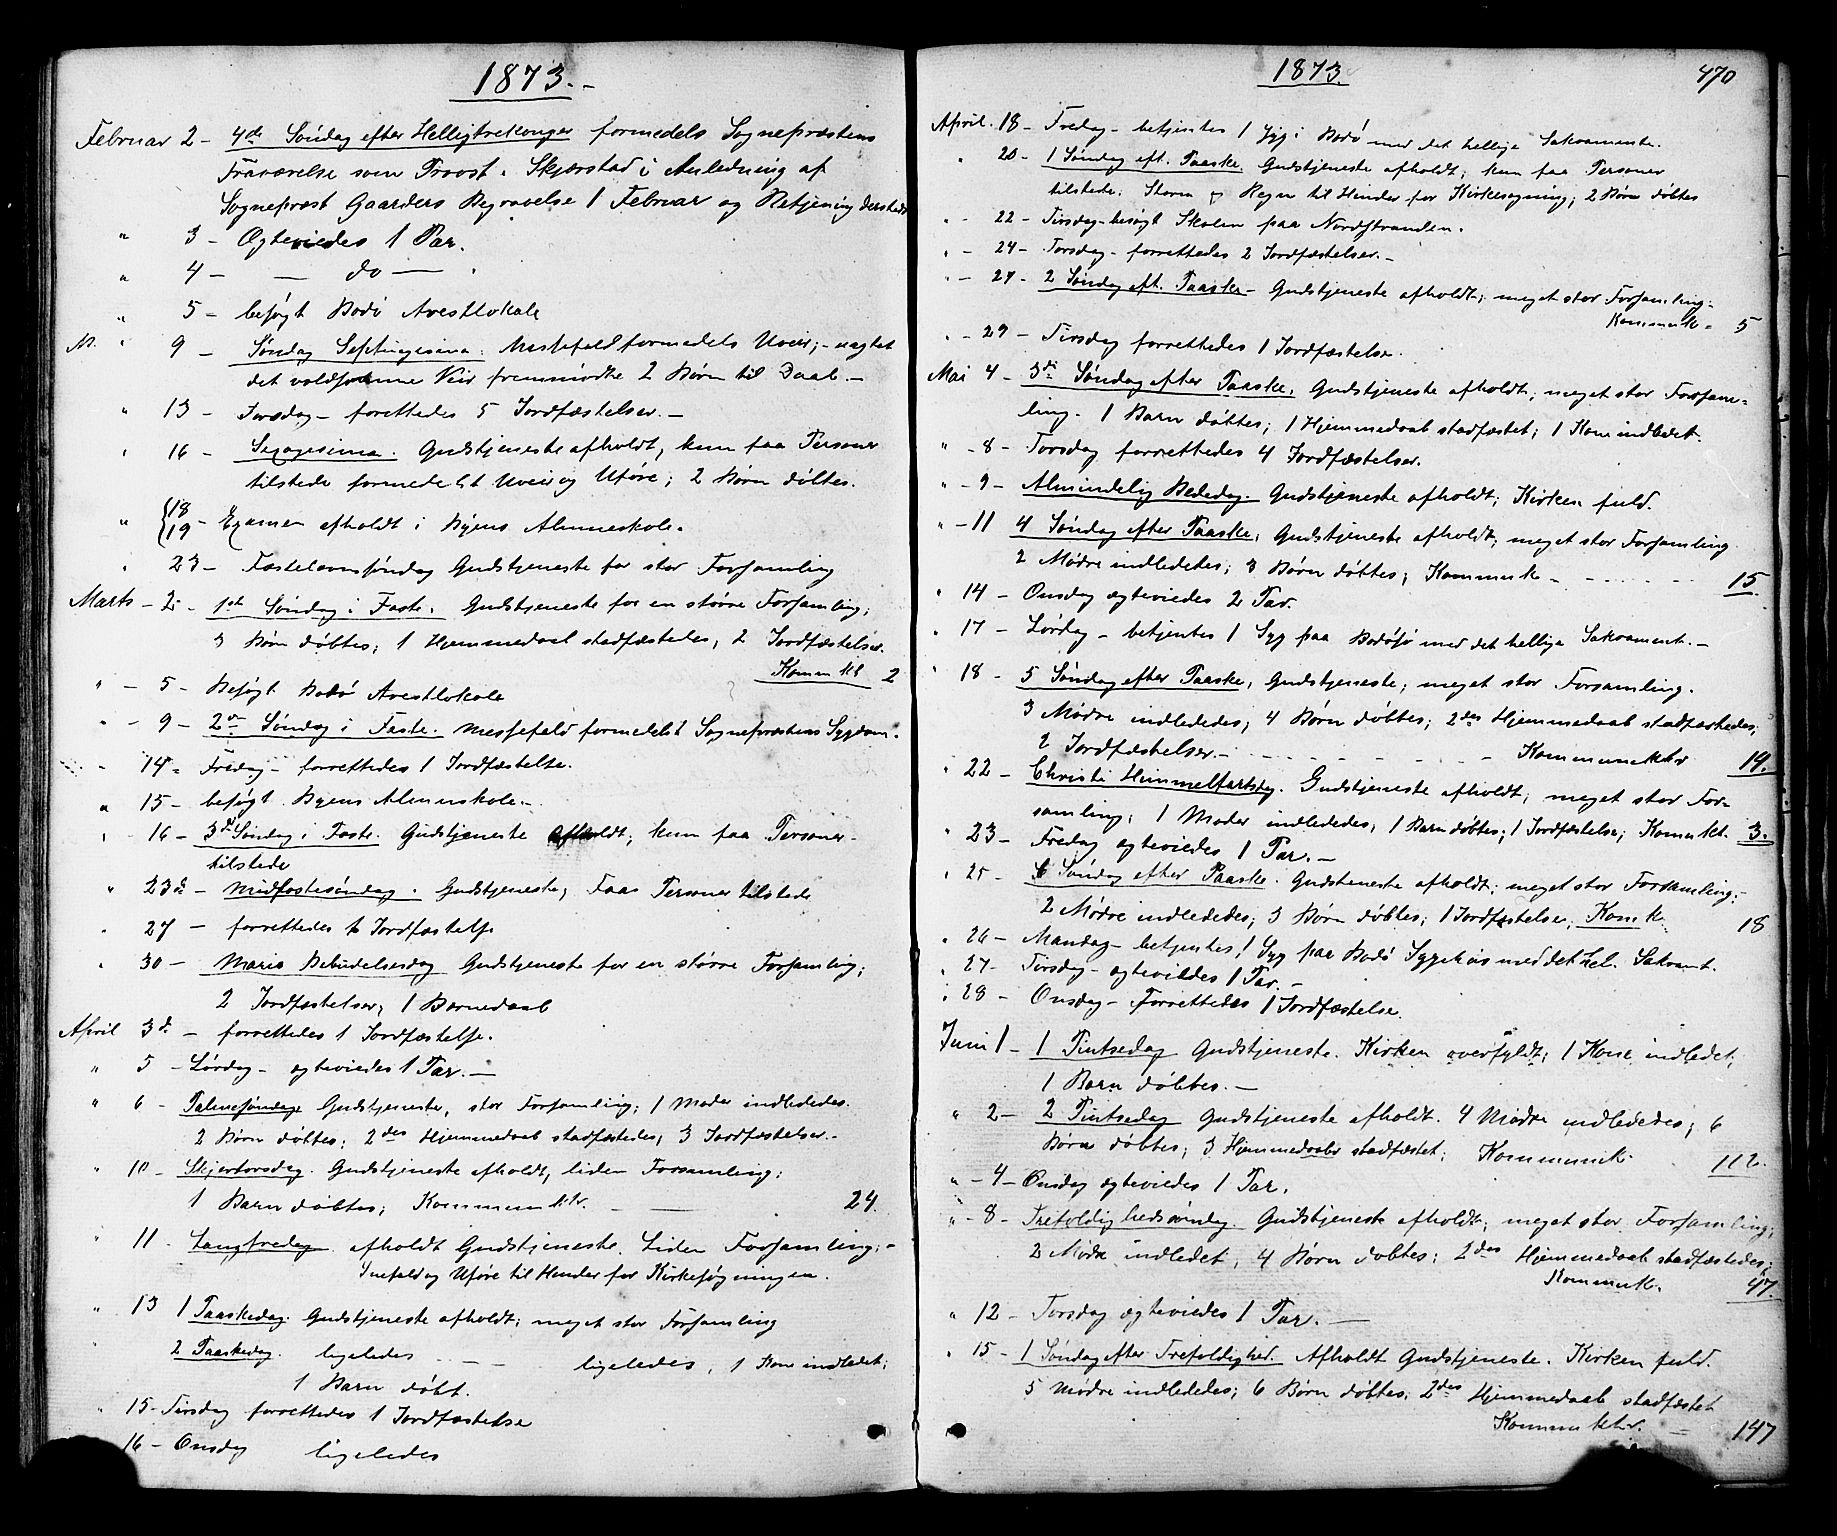 1873.-
Februar 2 - 4de Søndag efter Helligtrekonger formedels Sognepræstens
Fraværelse som Provst i Skjerstad i Anledning af
Sognepræst Gaarders Begravelse 1 Februar og Betjening dersteds
" 3 - Ægteviedes 1 Par.
" 4 - — do —
" 5 - besøgt Bodø Arestlokale
" 9 - Søndag Septuagesima. Messefald formedels Uveir; - uagtet
det voldsomme Veir fremmødte 2 Børn til Daab. -
" 13 - Torsdag - forettedes 5 Jordfæstelser. -
" 16 - Sexagesima. Gudstjeneste afholdt, kun faa Personer
tilstede formedelst Uveir og Uføre; 2 Børn døbtes.
" {18 19 - Examen afholdt i Byens Almueskole.
" 23 - Fastelavnssøndag Gudstjeneste for stor Forsamling
Marts - 2 - 1ste Søndag i Faste. Gudstjeneste for en større Forsamling;
3 Børn døbtes; 1 Hjemmedaab stadfæstedes, 2 Jordfæstelser.
Kommunik 2
" - 5 - Besøgt Bodø Arestlokale
" - 9 - 2den Søndag i Faste. Messefald formedelst Sognepræstens Sygdom.
" 14 - Fredag - forrettedes 1 Jordfæstelse.
" 15 - besøgt Byens Almueskole. -
" 16 - 3die Søndag i Faste. Gudstjeneste afholdt; kun faa Personer
tilstede
" 23de - Midfastesøndag. Gudstjeneste, Faa Personer tilstede
" 27 - forrettedes Jordfæstelse
" 30 - Maria Bebudelsesdag Gudstjeneste for en større Forsamling;
2 Jordfæstelser, 1 Barnedaab
April 3d - forrettedes 1 Jordfæstelse.
" 5 - Lørdag - ægteviedes 1 Par. -
" 6 - Palmesøndag Gudstjeneste, stor Forsamling; 1 Moder indlededes.
2 Børn døbtes; 2des Hjemmedaab stadfæstedes, 3 Jordfæstelser. -
" 10 - Skjertorsdag. Gudstjeneste afholdt, liden Forsamling;
1 Barn døbtes; Kommuniktr. - — 24.
" 11 - Langfredag afholdt Gudstjeneste. Liden Forsamling; -
Snefald og Uføre til Hinder for Kirkesøgningen.
" 13 1 Paaskedag. Gudstjeneste afholdt; meget stor Forsamling
2 Paaskedag. ligeledes - - - ligeledes, 1 Kone indledet;
1 Barn døbt.
" 15 - Tirsdag forrettedes 1 Jordfæstelse
16 - Onsdag ligeledes
1873.
470
April. 18 - Fredag - betjentes 1 Syg i Bodø med det hellige Sakramente.
" 20 - 1 Søndag eft. Paaske. Gudstjeneste afholdt; kun faa Personer
tilstede; Storm og Regn til Hinder for Kirkesøgning; 2 Børn døbtes
" - 22 - Tirsdag - besøgt Skolen paa Nordstranden.
" - 24 - Torsdag - forrettedes 2 Jordfæstelser. -
" - 27 - 2 Søndag eft. Paaske - Gudstjeneste afholdt; meget stor Forsamling -
Kommunik - 5
" - 29 - Tirsdag forrettedes 1 Jordfæstelse.
Mai 4 - 3die Søndag efter Paaske. Gudstjeneste afholdt; meget stor Forsam=
ling. 1 Barn døbtes; 1 Hjemmedaab stadfæstet; 1 Kone indledet.
" - 8 - Torsdag forrettedes 4 Jordfæstelser.
" - 9 - Almindelig Bededag. Gudstjeneste afholdt; Kirken fuld.
" - 11 4 Søndag efter Paaske, Gudstjeneste afholdt; meget stor Forsamling
2 Mødre indlededes; 3 Børn døbtes; Kommunik - - - - 15.
" 14 - Onsdag ægteviedes 2 Par.
" 17 - Lørdag - betjentes 1 Syg paa Bodøsjø med det hellige Sakrament. -
" 18 - 5 Søndag efter Paaske, Gudstjeneste; meget stor Forsamling.
3 Mødre indlededes; 4 Børn døbtes; 2des Hjemmedaab stadfæstedes;
2 Jordfæstelser. - - - - - Kommuniktr 19.
" 22 - Christi Himmelfartsdag. Gudstjeneste afholdt; meget stor For-
samling; 1 Moder indlededes; 1 Barn døbtes; 1 Jordfæstelse; Komunkt. 3.
" 23 - Fredag ægteviedes 1 Par. -
" 25 - 6 Søndag efter Paaske. Gudsteneste afholdt; meget stor Forsamling; -
2 Mødre indlededes; 3 Børn døbtes; 1 Jordfæstelse, Komk. 18
" 26 - Mandag - betjentes 1 Syg paa Bodø Sygehus med det hel. Sakramt.
" 27 - Tirsdag - ægteviedes 1 Par. -
" 28 - Onsdag - Forrettedes 1 Jordfæstelse.
Juni 1 - 1 Pintsedag Gudstjeneste. Kirken overfyldt; 1 Kone indledet;
1 Barn døbtes. -
" 2 - 2 Pintsedag Gudstjeneste afholdt. 4 Mødre indlededes; 6
Børn døbtes; 3 Hjemmedaaber stadfæstet; Kommunik. 112.
" - 4 - Onsdag ægteviedes 1 Par.
" - 8 - Trefoldighedssøndag. Gudstjeneste afholdt; meget stor Forsamling;
2 Mødre indledet, 4 Børn døbtes; 2des Hjemmedaab stadfæstedes;
Kommunik. 47.
" 12 - Torsdag ægteviedes 1 Par. —
" 15 - 1 Søndag efter Trefoldighed. Afholdt Gudstjeneste. Kirken fuld.
5 Mødre indlededes; 6 Børn døbtes; 2des Hjemmedaab stadfæstet
Kommunktr. - 147